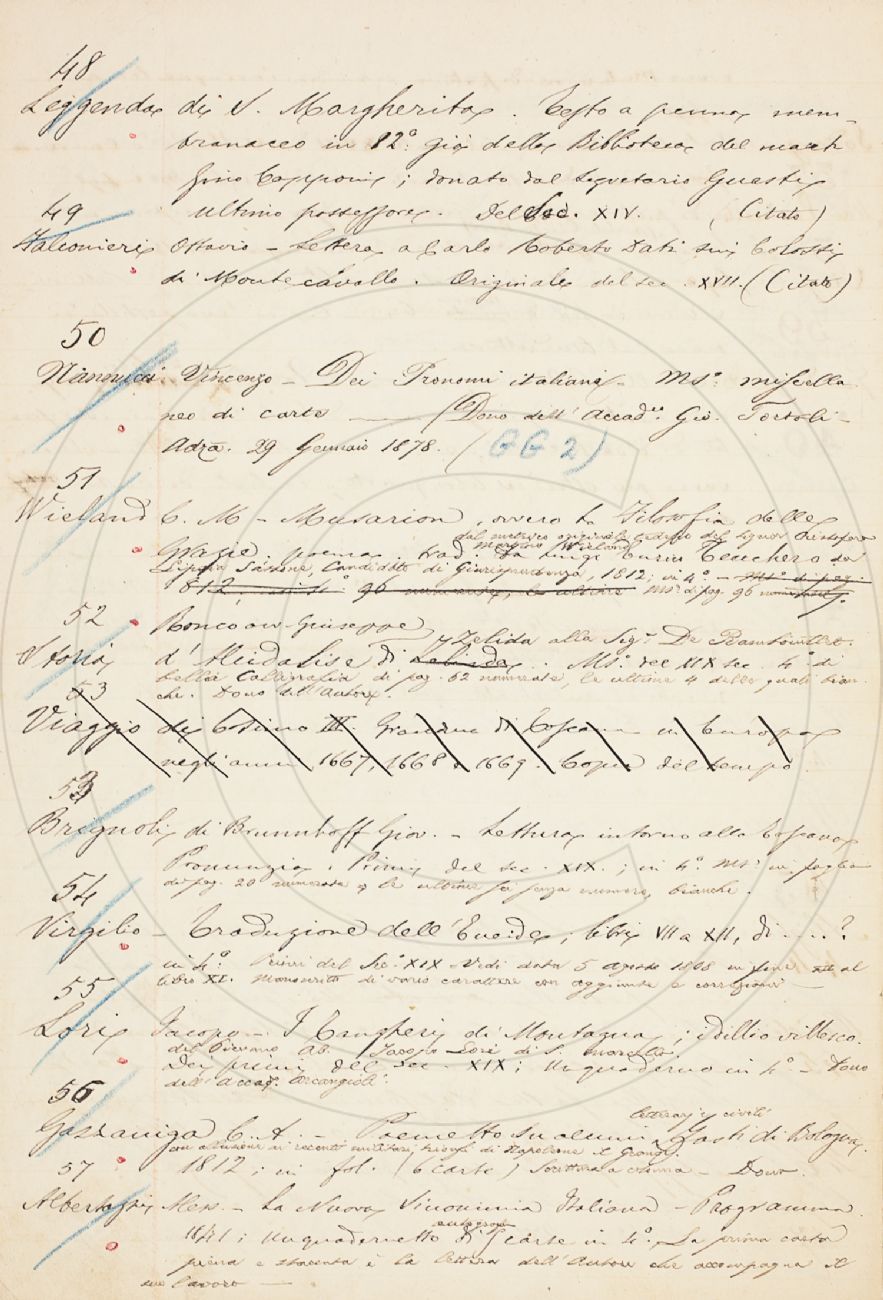 48
Leggenda di S. Margherita. Testo a penna mem-
branaceo in 82° già della Biblioteca del march
Gino Capponi; donato dal Segretario Guasti
ultimo possessore. Del Sec. XIV. (Citato)
49
Falconieri Ottavio - Lettera a Carlo Roberto Dati sui Colossi
di Montecavallo. Originale del sec. XVII. (Citato)
50
Nannucci Vincenzo - Dei Pronomi italiani - Ms°. miscella
neo di carte —— (Dono dell' Accad.co Gio. Tortoli
Adza. 29 Gennaio 1878. (GG 2)
51
Wieland C. M - Musarion, ovvero la Filosofia delle
dal metrico originale tedesco del Signor Cristoforo
Martino Wieland
Grazie. poema. trad. Luigi
Lipsia Sassone, Candidato di Giurisprudenza, 1812; in 4°. - Ms° di pag.
1812, in 4°. 96 numerate, le ultime Ms° di pag. 96 numerate.
52
Giuseppe
Storia d' di Zelida alla Sig.ra De
Ms°. del XIX sec. 4° di
bella Calligrafia di pag. 62 numerate, le ultime 4 delle quali bian-
che. Dono dell' Autore.
53
Viaggio di Cosimo III. Granduca di Toscana in Europa
negli anni 1667, 1668 e 1669. Copia del tempo.
53
Brignoli di Brunnhoff Giov. - Lettera intorno alla Toscana
Pronunzia. Primi del sec. XIX.; in 4°. Ms° in foglio
di pag. 20 numerate e le ultime senza numero, bianche.
54
Virgilio - Traduzione dell' Eneide; libri VII a XII, di ....?
in 4°. Primi del Sec. XIX. Vedi data 5 agosto 1808 in fine al
libro XI. Manoscritto di vario carattere con aggiunte e correzioni —
55
Lori Jacopo - I Cangheri di Montagna; idillio villesco.
del Pievano Ab. Jacopo Lori di S.
Dei primi del sec. XIX; un quaderno in 4° - Dono
dell' Accad. Arcangioli.
56
letterarj e civili
Gazzaniga C. A. - Poemetto su alcuni Fasti di Bologna,
con allusioni ai recenti militari trionfi di Napoleone il Grande.
1812; in fol. (6 carte) Scrittura a colonna - Dono.
57
Albertazzi Aless. - La Nuova Sinonimia Italiana - Programma.
autografo
1841; Un quadernetto di 9 carte in 4°. La prima carta
piena e staccata è la lettera dell' Autore che accompagna il
suo lavoro —